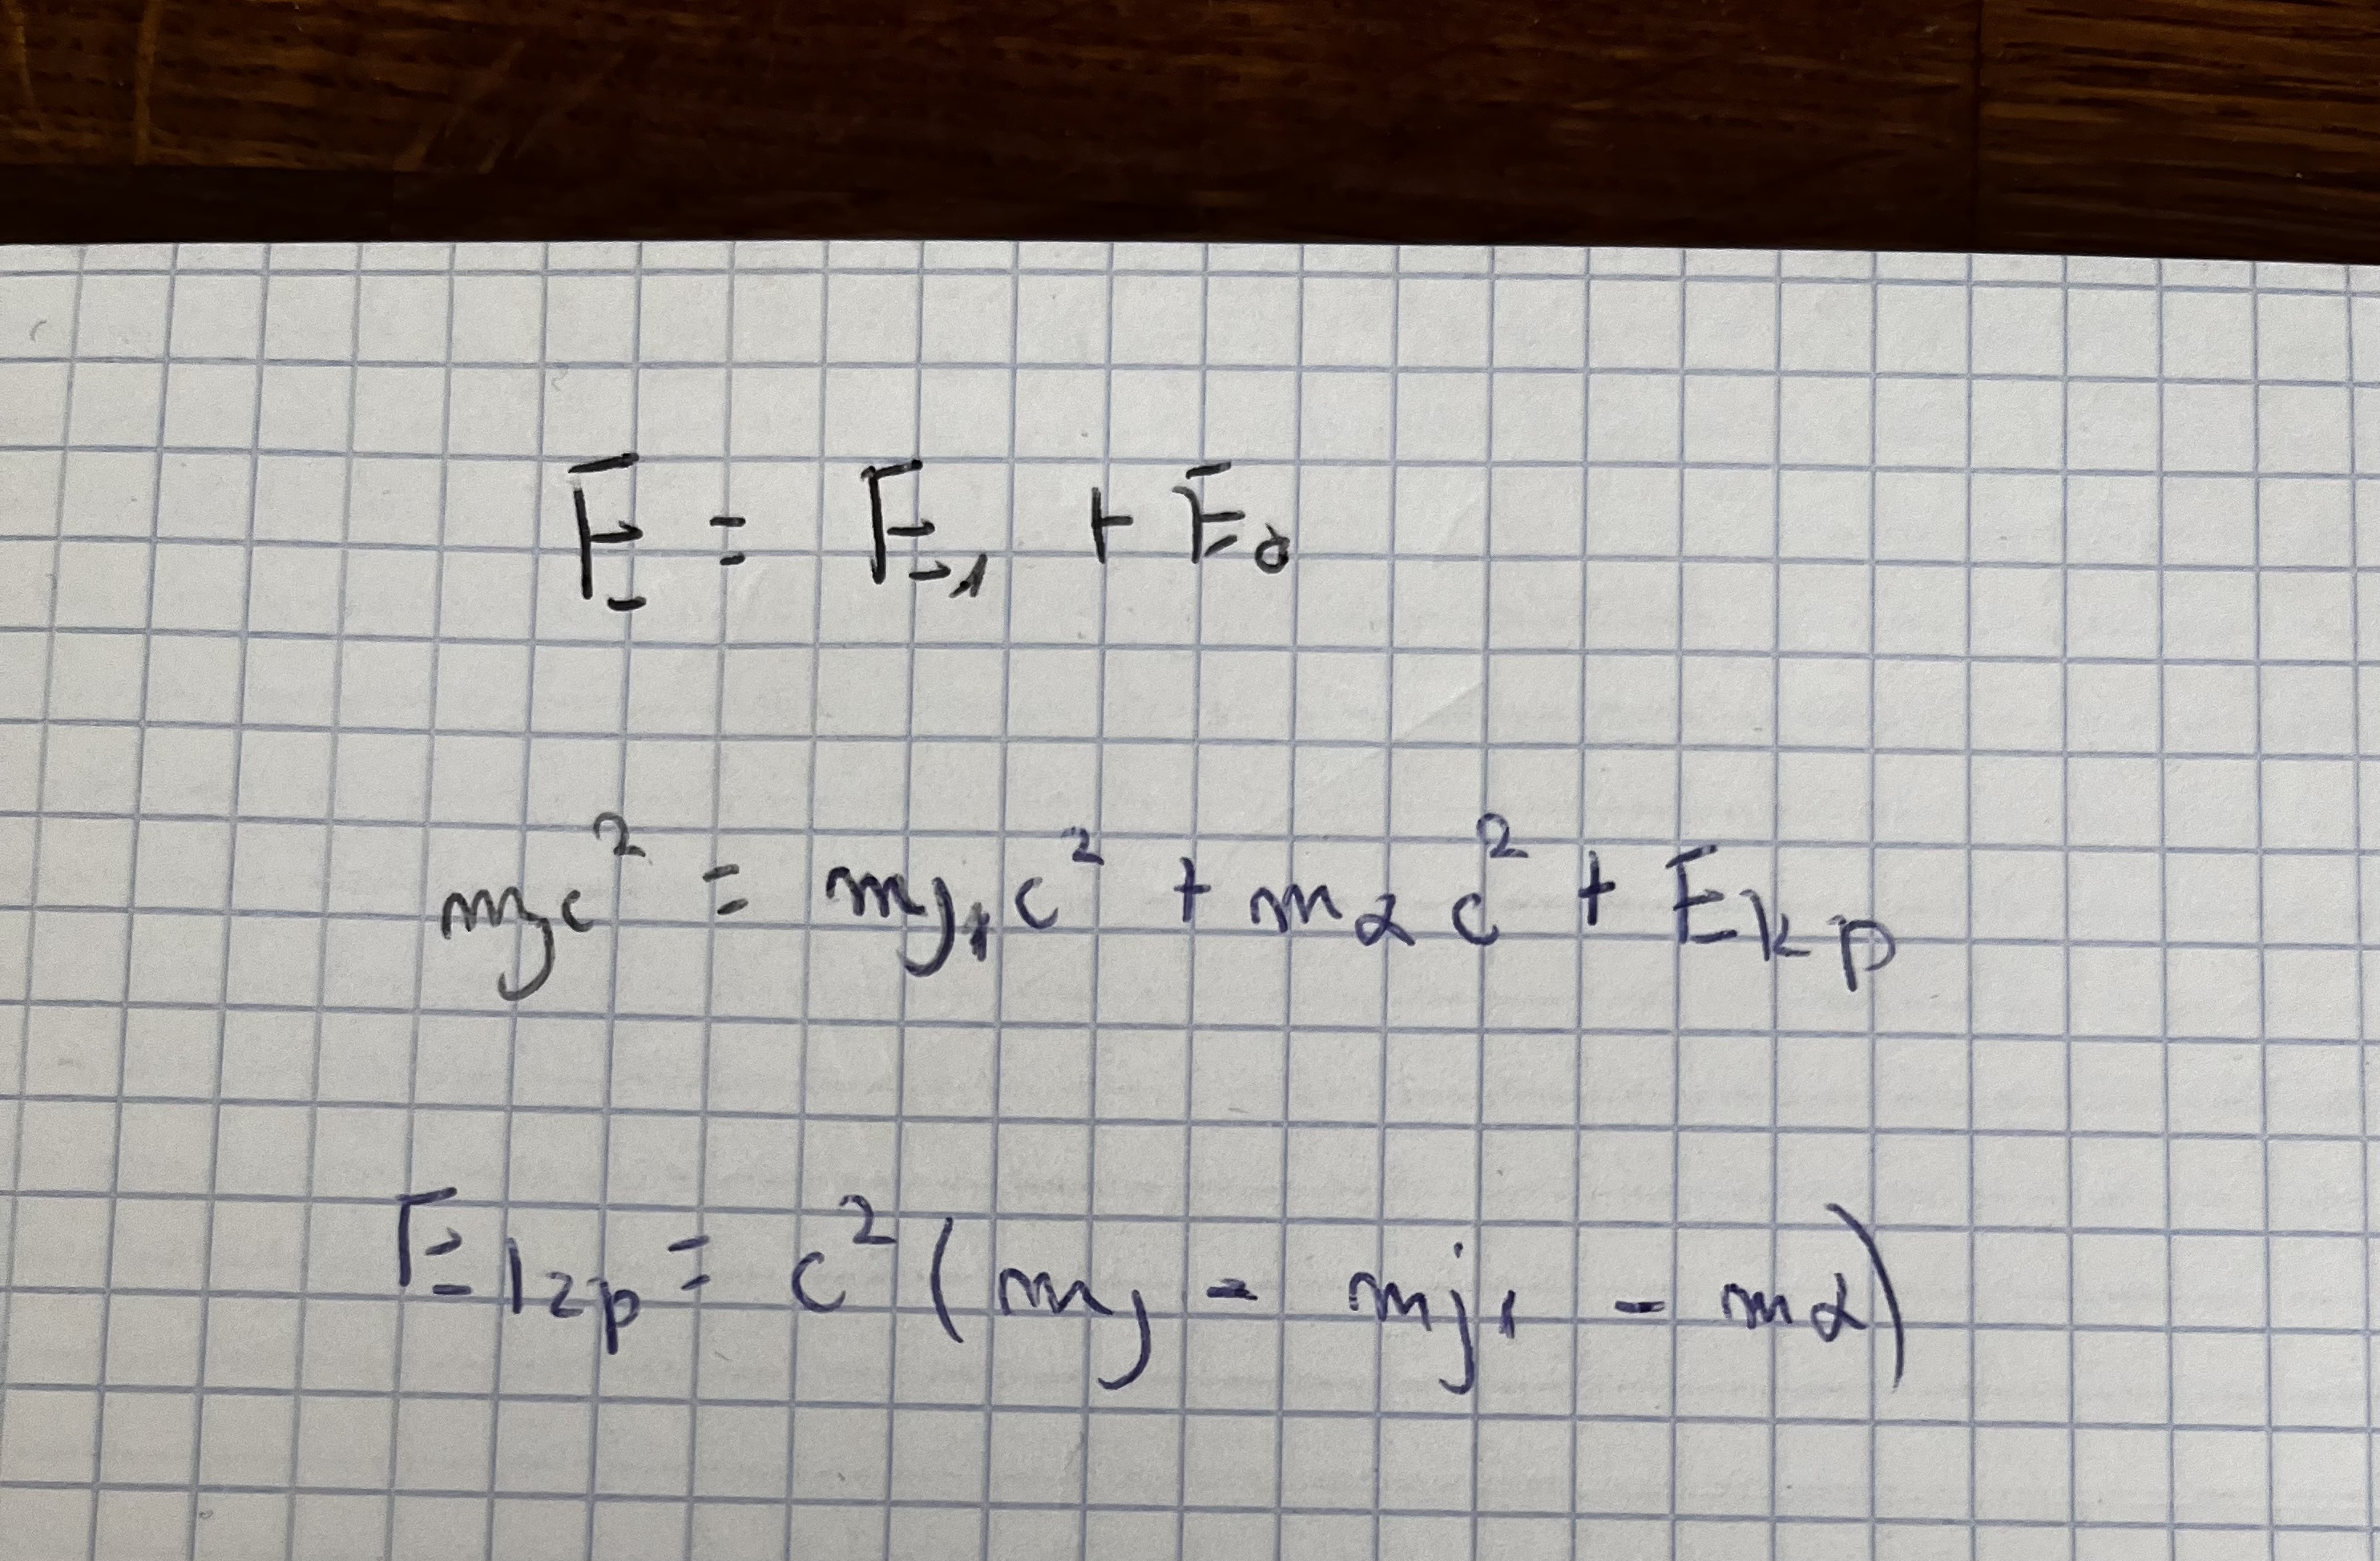 E = E₁ + E₂
mjc² = mj₁c² + mαc² + Ekp
Ekp = c² (mj - mj₁ - mα)